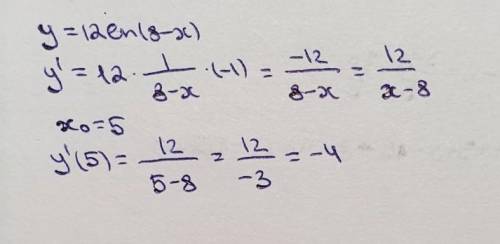 y = 12ln(8-x)
y' = 12 · 1/(8-x) · (-1) = -12/(8-x) = 12/(x-8)
x₀ = 5
y'(5) = 12/(5-8) = 12/(-3) = -4